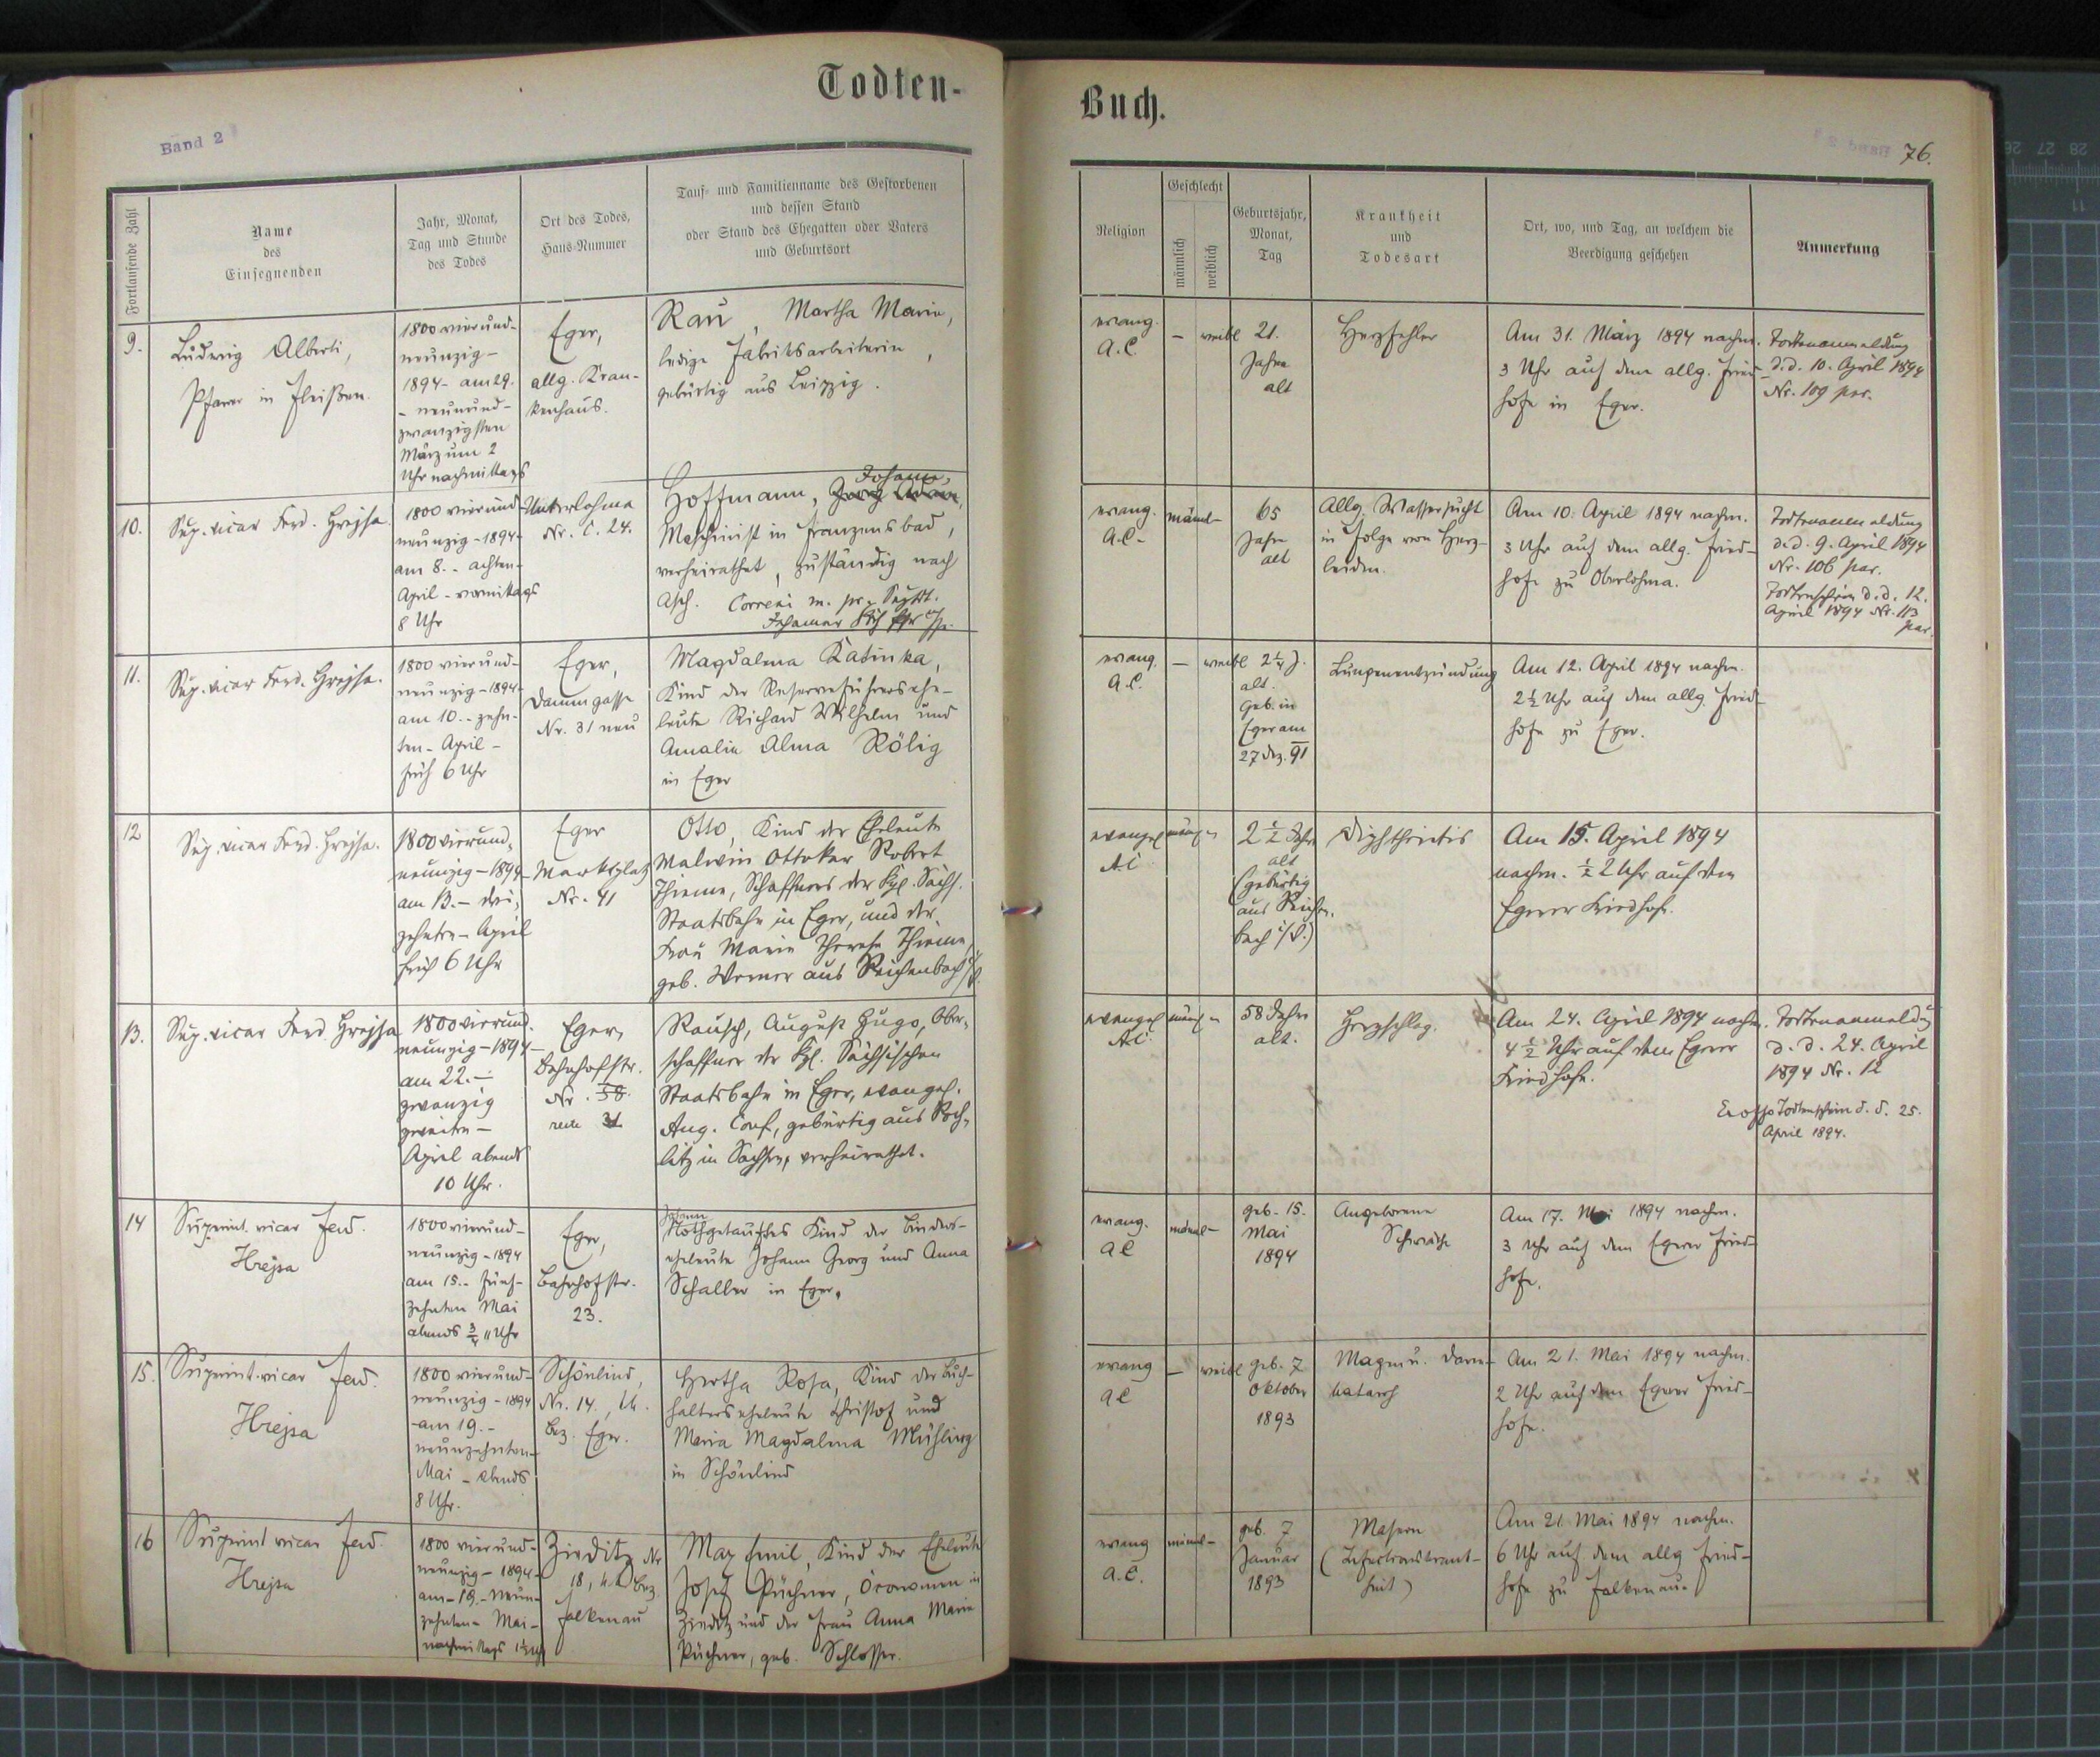 Todten-
Buch.
Band 2
76.
Fortlaufende Zahl
Name
des
Einsegnenden
Jahr, Monat,
Tag und Stunde
des Todes
Ort des Todes,
Haus-Nummer
Tauf- und Familienname des Gestorbenen
und dessen Stand
oder Stand des Ehegatten oder Vaters
und Geburtsort
Religion
Geschlecht
männlich
weiblich
Geburtsjahr,
Monat,
Tag
Krankheit
und
Todesart
Ort, wo, und Tag, an welchem die
Beerdigung geschehen
Anmerkung
9.
Ludwig Alberti,
Pfarrer in Fleißen.
1800 vierund-
neunzig-
1894 - am 29.
- neunund-
zwanzigsten
März um 2
Uhr nachmittags
Eger,
allg. Kran-
kenhaus.
Rau, Martha Marie,
ledige Fabriksarbeiterin,
gebürtig aus Leipzig.
evang.
A.C.
- weibl
21.
Jahre
alt
Herzfehler
Am 31. März 1894 nachm.
3 Uhr auf dem allg. Fried-
hofe in Eger.
Todtenanmeldung
d.d. 10. April 1894
Nr. 109 par.
10.
Sup. vicar Ferd. Hrejsa.
1800 vierund-
neunzig - 1894-
am 8. - achten-
April - vormittags
8 Uhr
Unterlohma
Nr. C. 24.
Johann,
Hoffmann,
Maschinist in Franzensbad,
verheirathet, zuständig nach
Asch. Correxi m. pr.
evang.
A.C.
männl-
65
Jahre
alt
Allg. Wassersucht
in Folge von Herz-
leiden.
Am 10. April 1894 nachm.
3 Uhr auf dem allg. Fried-
hofe zu Oberlohma.
Todtenanmeldung
d.d. 9. April 1894
Nr. 106 par.
Todtenschein d.d. 12.
April 1894 Nr. 113
par.
11.
Sup. vicar Ferd. Hrejsa.
1800 vierund-
neunzig - 1894-
am 10. - zehn-
ten - April -
früh 6 Uhr
Eger,
Dammgasse
Nr. 31 neu
Magdalena Katinka,
Kind der Reserveführersehe-
leute Richard Wilhelm und
Amalia Alma Rölig
in Eger
evang.
A.C.
- weibl
2 1/4 J.
alt.
geb. in
Eger am
27 Dez. 91
Lungenentzündung
Am 12. April 1894 nachm.
2 1/2 Uhr auf dem allg. Fried-
hofe zu Eger.
12
Sup. vicar Ferd. Hrejsa.
1800 vierund-
neunzig - 1894-
am 13. - drei-
zehnten - April
früh 6 Uhr
Eger
Marktplatz
Nr. 41
Otto, Kind der Eheleute
Malwin Ottokar Robert
Thieme, Schaffners der Kgl. Sächs.
Staatsbahn in Eger, und der
Frau Marie Therese Thieme,
geb. Werner aus Reichenbach i/V.
evangel
A.C.
männl-
2 1/2 Jahre
alt
(gebürtig
aus Reichen-
bach i/V.)
Diphtheritis
Am 15. April 1894
nachm. 1/2 2 Uhr auf dem
Egerer Friedhofe.
13.
Sup. vicar Ferd. Hrejsa
1800 vierund-
neunzig - 1894-
am 22. -
zwanzig
zweiten -
April abends
10 Uhr.
Eger,
Bahnhofstr.
Nr. 58.
neu 31
Rausch, August Hugo, Ober-
schaffner der Kgl. Sächsischen
Staatsbahn in Eger, evangel.
Aug. Conf., gebürtig aus Roch-
litz in Sachsen, verheirathet.
evangel
A.C.
männl-
58 Jahre
alt.
Herzschlag.
Am 24. April 1894 nachm.
4 1/2 Uhr auf dem Egerer
Friedhofe.
Todtenanmeldung
d. d. 24. April
1894 Nr. 12
Todtenschein d. d. 25.
April 1894.
14
Superint. vicar Ferd.
Hrejsa
1800 vierund-
neunzig - 1894
am 15. - fünf-
zehnten Mai
abends 3/4 11 Uhr
Eger,
Bahnhofstr.
23.
Johann
Nothgetauftes Kind der Binders-
eheleute Johann Georg und Anna
Schaller in Eger.
evang.
A C
männl-
geb. 15.
Mai
1894
Angeborene
Schwäche
Am 17. Mai 1894 nachm.
3 Uhr auf dem Egerer Fried-
hofe.
15.
Superint. vicar Ferd.
Hrejsa
1800 vierund-
neunzig - 1894
- am 19. -
neunzehnten-
Mai - abends
8 Uhr.
Schönlind,
Nr. 14.,
Bez. Eger.
Hertha Rosa, Kind der Buch-
halterseheleute Christof und
Maria Magdalena Mühling
in Schönlind
evang
A C
- weibl
geb. 7
Oktober
1893
Magen u. Darm-
katarrh
Am 21. Mai 1894 nachm.
2 Uhr auf dem Egerer Fried-
hofe.
16
Superint vicar Ferd.
Hrejsa
1800 vierund-
neunzig - 1894-
am - 19. - neun-
zehnten - Mai -
nachmittags
Zieditz Nr
18, Bez.
Falkenau
Max Emil, Kind der Eheleute
Josef Püchner, Öconomen in
Zieditz und der Frau Anna Marie
Püchner, geb. Schlosser.
evang
A.C.
männl-
geb. 7
Januar
1893
Masern
(Infectionskrank-
heit)
Am 21. Mai 1894 nachm.
6 Uhr auf dem allg Fried-
hofe zu Falkenau.